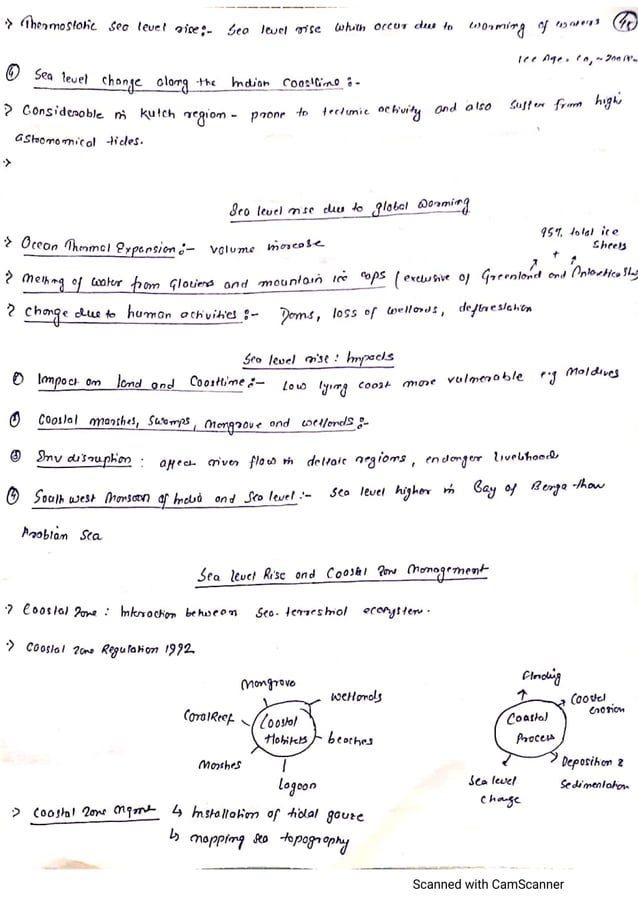 -> Thermostatic Sea level rise:- Sea level rise which occur due to warming of waters
Ice Age.
④ Sea level change along the Indian Coastline:-
-> Considerable in Kutch region - prone to tectonic activity and also suffer from high
astronomical tides.
->
Sea level rise due to global warming
-> Ocean Thermal Expansion:- volume increase
95% total ice
sheets
-> Melting of water from Glaciers and mountain ice caps (exclusive of Greenland and Antarctica
-> Change due to human activities:- Dams, loss of wetlands, deforestation
Sea level rise: Impacts
① Impact on land and Coastline:- Low lying coast more vulnerable e.g Maldives
Coastal marshes, Swamps, Mangrove and wetlands:-
③ Env disruption: affect river flow in deltaic regions, endanger livelihoods
④ South west Monsoon of India and Sea level:- Sea level higher in Bay of Benga than
Arabian Sea
Sea level Rise and Coastal Zone Management
-> Coastal Zone: Interaction between Sea-terrestrial ecosystem.
-> Coastal Zone Regulation 1992
Mangrove
wetlands
Coral Reef
Coastal
Habitats
beaches
Marshes
Lagoon
Flooding
Coastal
erosion
Coastal
Process
Deposition &
Sedimentation
Sea level
change
-> Coastal Zone Mgmt ↳ Installation of tidal gauze
↳ mapping sea topography
Scanned with CamScanner